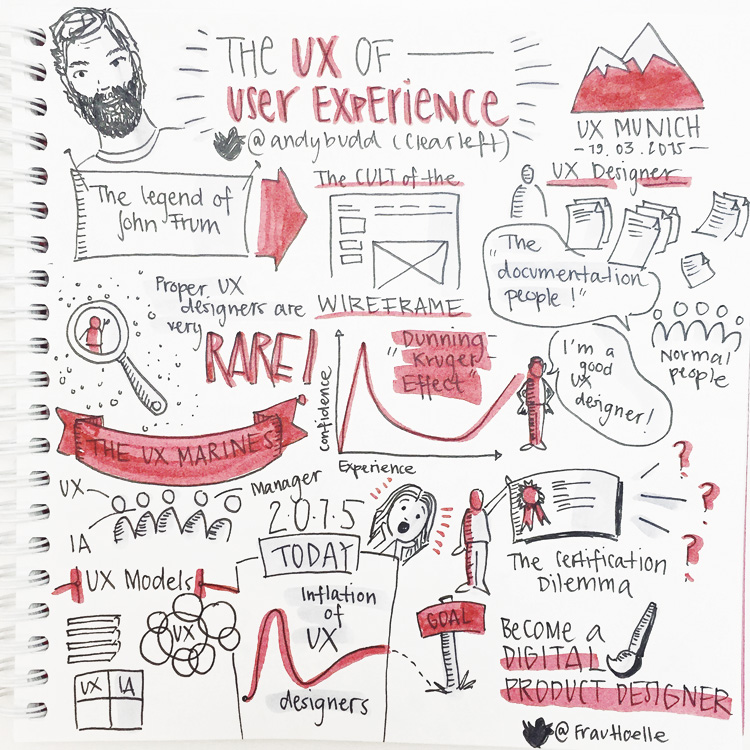 THE UX OF
USER EXPERIENCE
@andybudd (clearleft)
UX MUNICH
- 19.03.2015 -
The legend of
John Frum
The CULT of the
WIREFRAME
UX Designer
"The
documentation
people!"
Normal
people
Proper UX
designers are
very
RARE!
"Dunning
Kruger
Effect"
confidence
Experience
I'm a
good
UX
designer!
THE UX MARINES
UX
Manager
IA
2.0.1.5
TODAY
Inflation
of
UX
designers
GOAL
? ? ?
The Certification
Dilemma
UX Models
UX
UX IA
BECOME A
DIGITAL
PRODUCT DESIGNER
@FrauHoelle